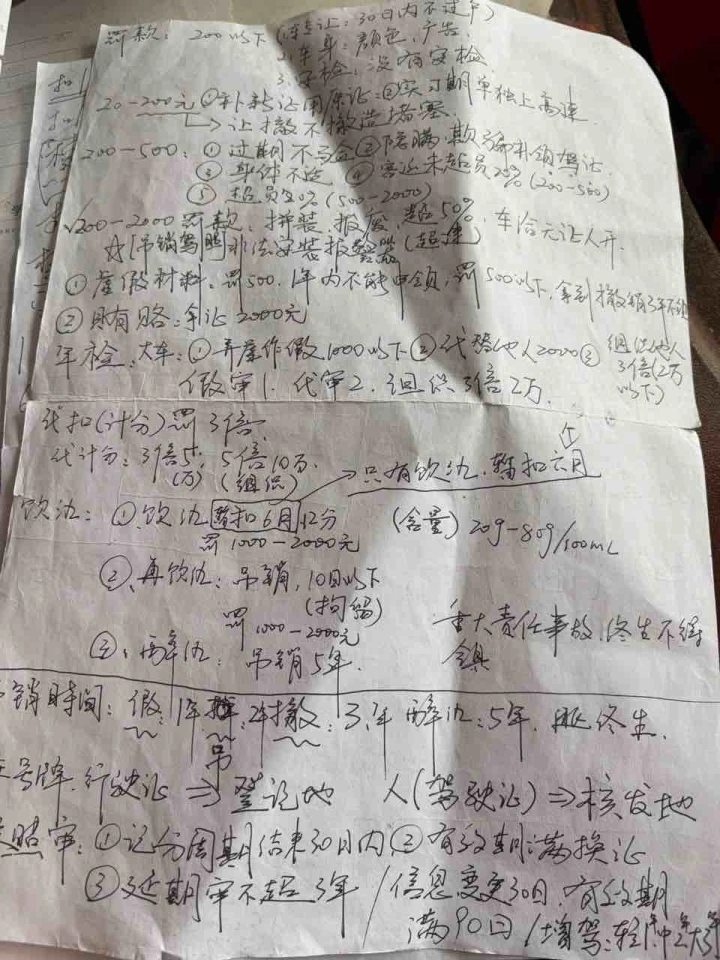 罚款: 200以下
30日内不过户)
2.车身:颜色,广告
3.安检:没有安检
20-200元 ①补新证用原证 ②实习期单独上高速
→让撤不撤造堵塞
200-500: ①过期不驾 ②隐瞒,欺骗补领驾证
③身体不适 ④客运未超员20% (200-500)
⑤超员20% (500-2000)
√200-2000罚款:拼装,报废,超50%,车给无证人开.
吊销驾照 非法安装报警器 (超速)
①虚假材料,罚500.1年内不能申领,罚500以下,拿到撤销3年不
②贿赂:拿证2000元
年检:大车:①弄虚作假1000以下②代替他人2000③组织他人
3倍(2万
以下)
假审1.代审2.组织3倍2万.
代扣(计分)罚3倍.
代计分:3倍5,5倍10万.
(万) (组织)
→只有饮酒,暂扣六月
饮酒: ①.饮酒 暂扣6月 12分 (含量) 20g-80g/100mL
罚1000-2000元
②.再饮酒:吊销,10日以下
(拘留)
罚1000-2000元
③.醉酒:吊销5年.
重大责任事故,终生不得
销时间:假:1年 吊:2年 撤:3年 醉酒:5年.逃终生.
号牌.行驶证⇒登记地 人(驾驶证)⇒核发地
审:①记分周期结束30日内②有效期满换证
③延期审不超3年/信息变更30日.有效期
满90日/增驾:轻